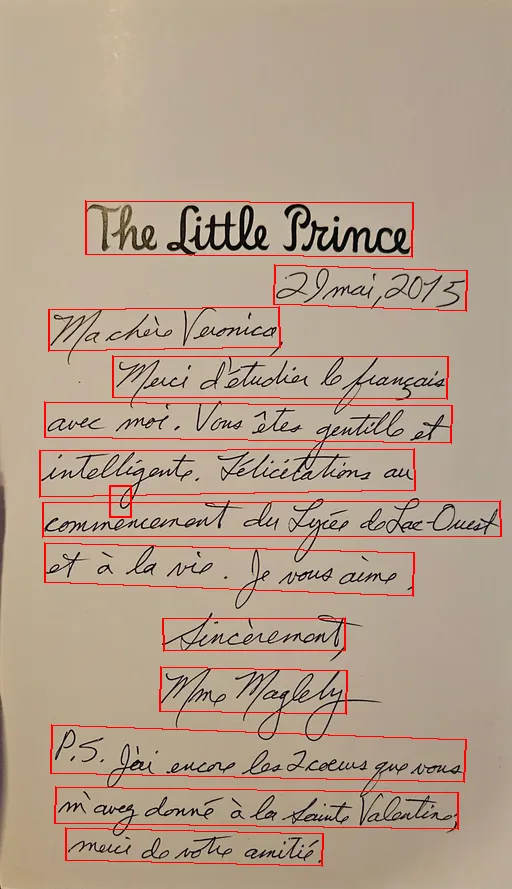 The Little Prince
29 mai, 2015
Ma chère Veronica,
Merci d'étudier le français
avec moi. Vous êtes gentille et
intelligente. Félicitations au
commencement du Lycée de Lac-Ouest
et à la vie. Je vous aime.
Sincèrement,
Mme Maglely
P.S. J'ai encore les 2 coeurs que vous
m'avez donné à la Sainte Valentine,
merci de votre amitié.